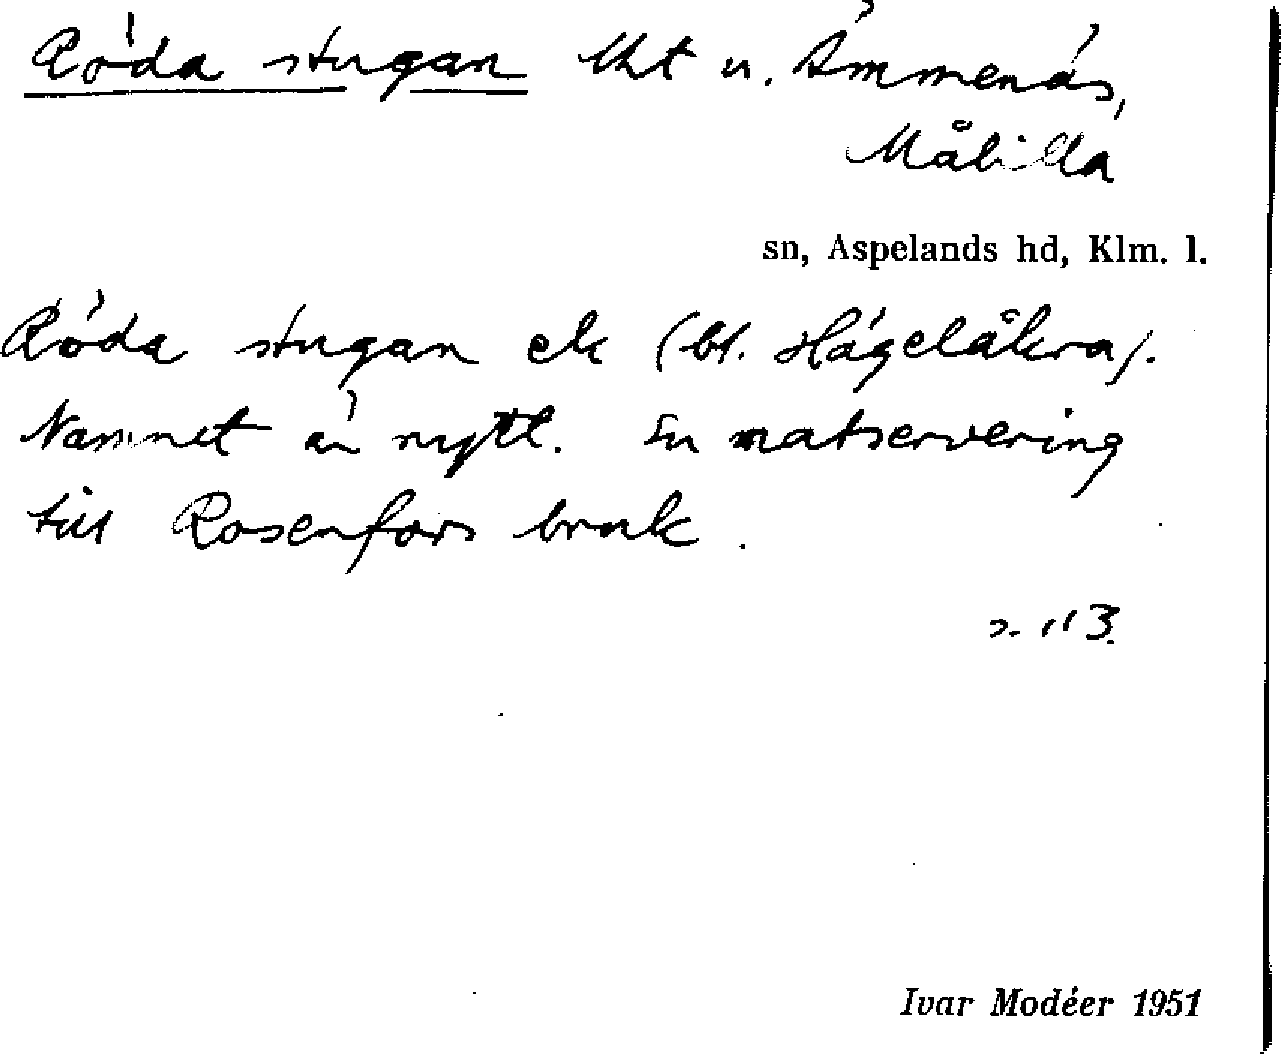 Röda stugan lht u. Ämmenäs,
Målilla
sn, Aspelands hd, Klm. l.
Röda stugan ek (bf. Hägelåkra).
Namnet är nytt. En matservering
till Rosenfors bruk.
s. 113.
Ivar Modéer 1951